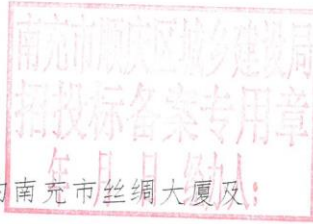 南充市顺庆区城乡建设局
招投标备案专用章
年 月 日 经办人：
的南充市丝绸大厦及